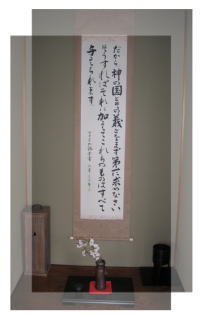 だから神の国とその義とをまず第一に求めなさい
そうすればそれに加えてこれらのものはすべて
与えられます